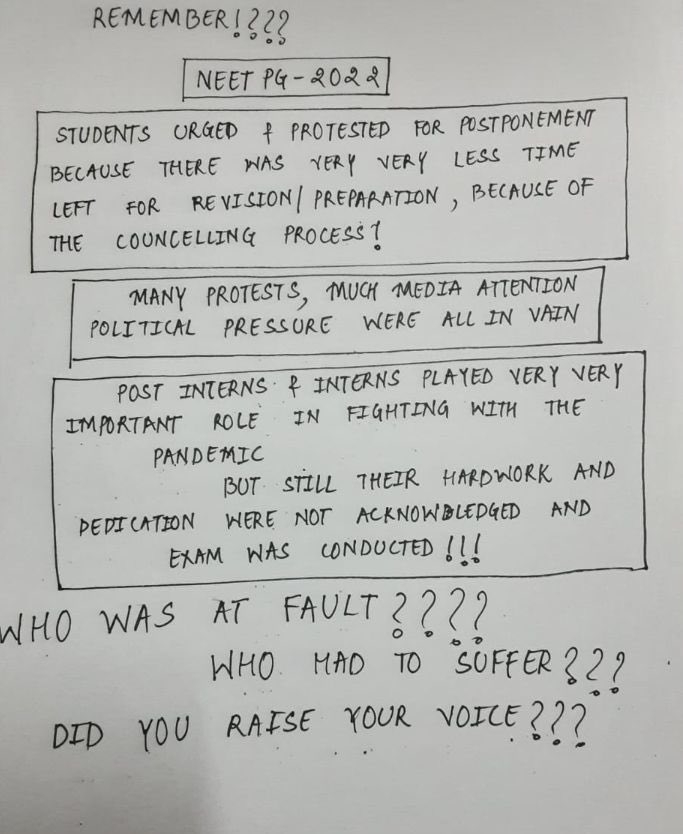 REMEMBER!???
NEET PG-2022
STUDENTS URGED & PROTESTED FOR POSTPONEMENT
BECAUSE THERE WAS VERY VERY LESS TIME
LEFT FOR REVISION/PREPARATION, BECAUSE OF
THE COUNCELLING PROCESS!
MANY PROTESTS, MUCH MEDIA ATTENTION
POLITICAL PRESSURE WERE ALL IN VAIN
POST INTERNS & INTERNS PLAYED VERY VERY
IMPORTANT ROLE IN FIGHTING WITH THE
PANDEMIC
BUT STILL THEIR HARDWORK AND
DEDICATION WERE NOT ACKNOWBLEDGED AND
EXAM WAS CONDUCTED!!!
WHO WAS AT FAULT????
WHO HAD TO SUFFER???
DID YOU RAISE YOUR VOICE???